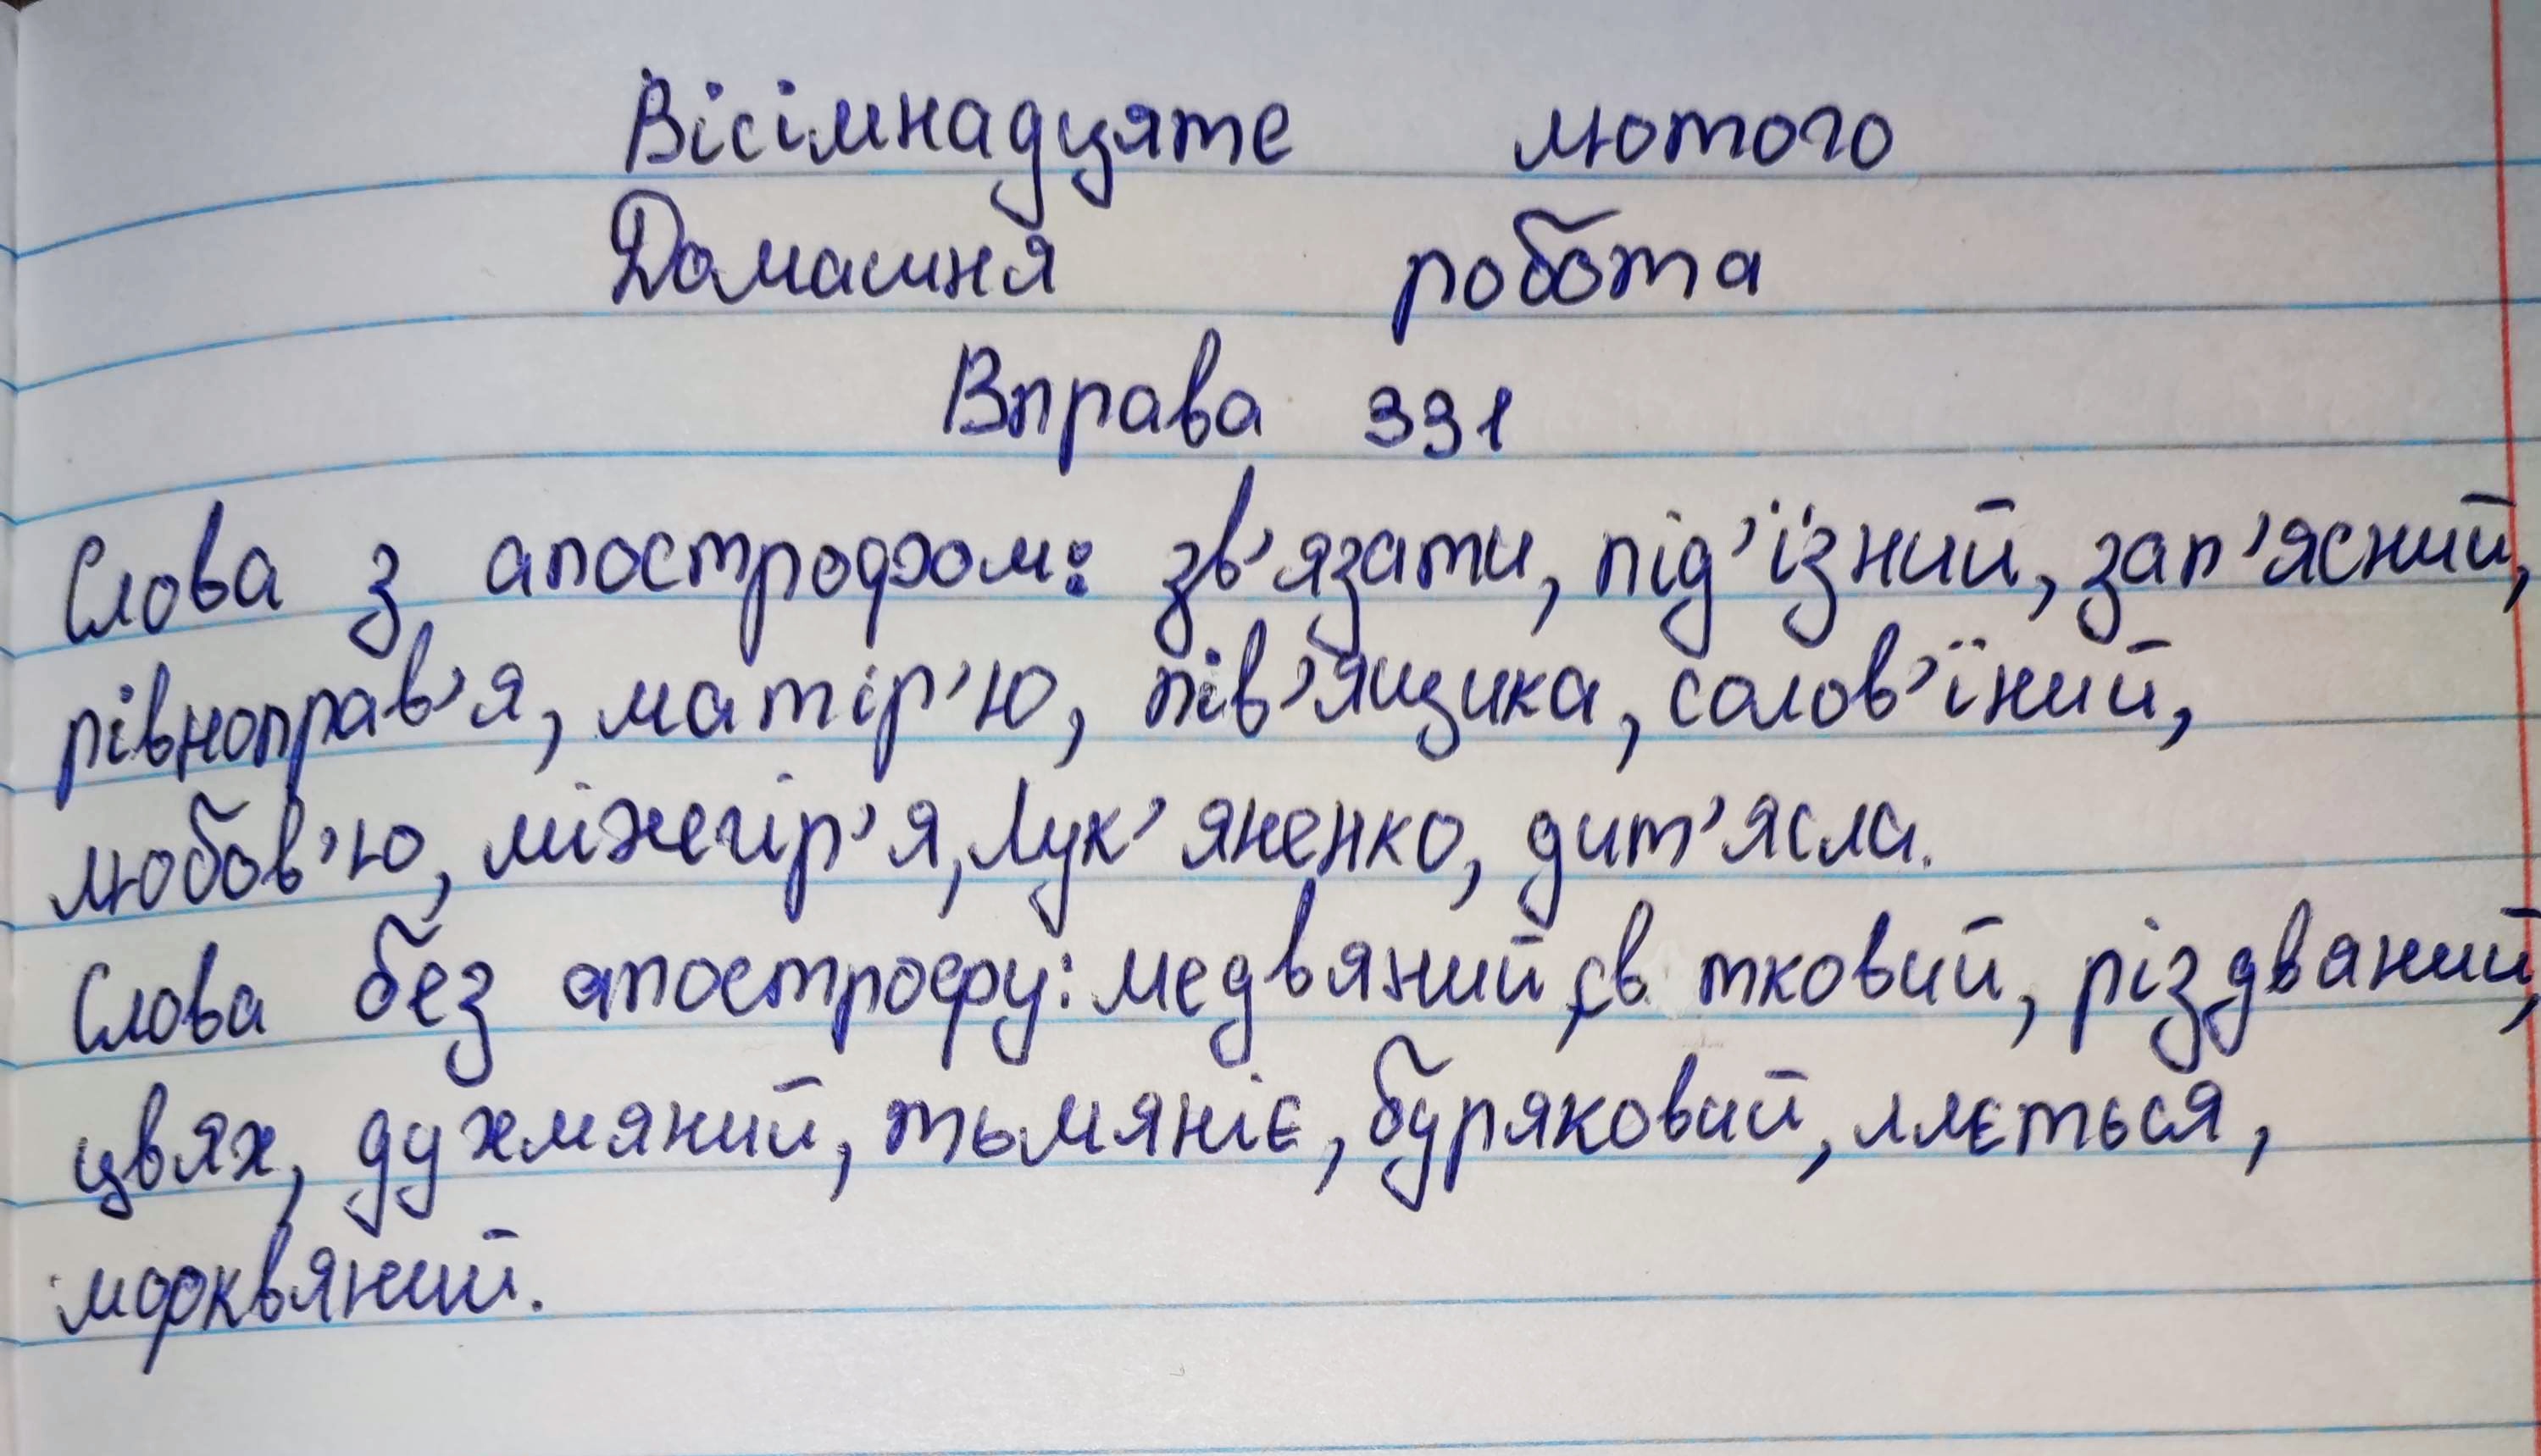 Вісімнадцяте лютого
Домашня робота
Вправа 331
Слова з апострофом: зв'язати, під'їзний, зап'ясний,
рівноправ'я, матір'ю, пів'ящика, солов'їний,
любов'ю, міжгір'я, Лук'яненко, дит'ясла.
Слова без апострофу: медвяний, св тковий, різдвяний,
цвях, духмяний, тьмяніє, буряковий, ллється,
морквяний.